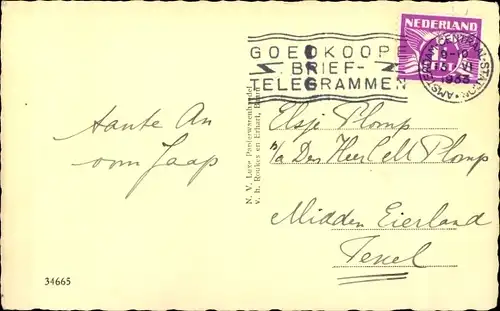 GOEDKOOPE
BRIEF-
TELEGRAMMEN
NEDERLAND
AMSTERDAM CENTRAAL-STATION
1933
tante An
oom Jaap
N. V. Luxe Papierwarenhandel
v. h. Roukes en Erhart, Baarn
Elsje Plomp
p/a Den Heer C M Plomp
Midden Eierland
Texel
34665